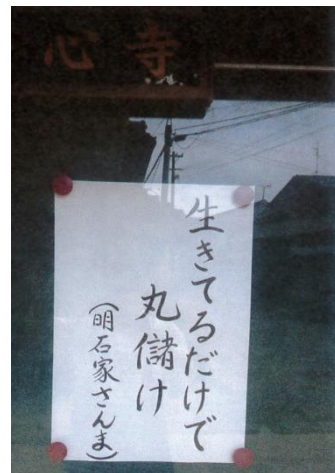 心寺
生きてるだけで
丸儲け
(明石家さんま)